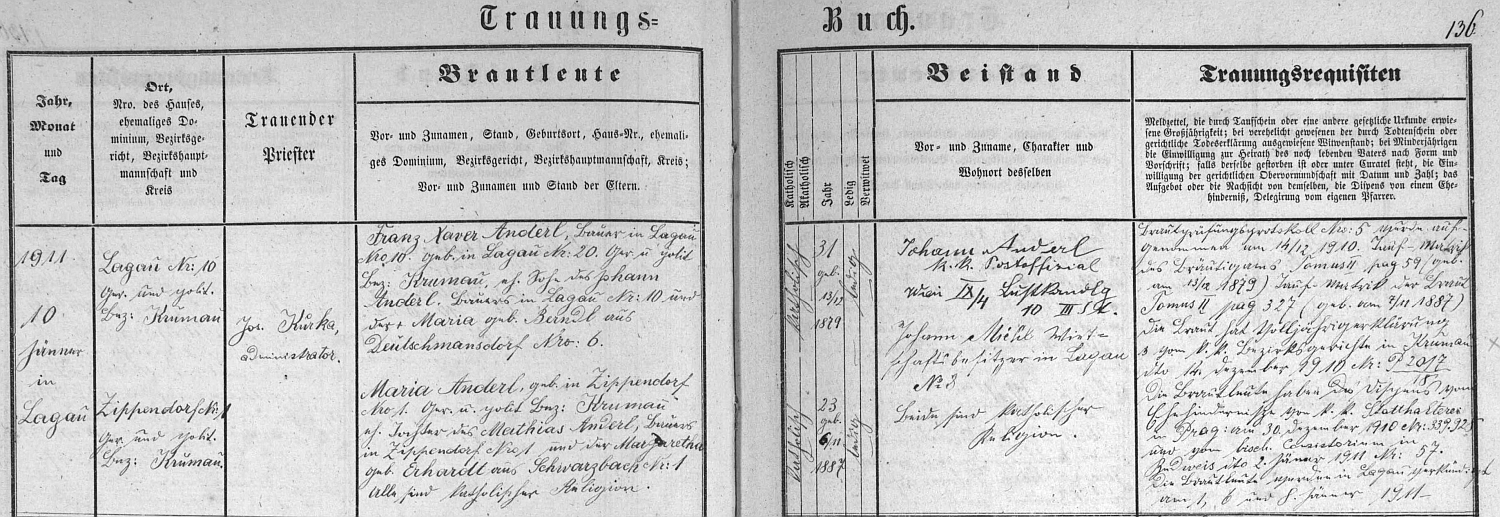 Trauungs=
Buch.
136
Jahr,
Monat
und
Tag
Ort,
Nro. des Hauses,
ehemaliges Do-
minium, Bezirksge-
richt, Bezirkshaupt-
mannschaft und
Kreis
Trauender
Priester
Brautleute
Vor- und Zunamen, Stand, Geburtsort, Haus-Nr., ehemali-
ges Dominium, Bezirksgericht, Bezirkshauptmannschaft, Kreis;
Vor- und Zunamen und Stand der Eltern.
Katholisch
Akatholisch
Jahr
Ledig
Verwitwet
Beistand
Vor- und Zuname, Charakter und
Wohnort desselben
Trauungsrequisiten
Meldzettel, die durch Taufschein oder eine andere gesetzliche Urkunde erwie-
sene Großjährigkeit; bei verehelicht gewesenen der durch Todtenschein oder
gerichtliche Todeserklärung ausgewiesene Witwenstand; bei Minderjährigen
die Einwilligung zur Heirath des noch lebenden Vaters nach Form und
Vorschrift; falls derselbe gestorben ist oder unter Curatel steht, die Ein-
willigung der gerichtlichen Obervormundschaft mit Datum und Zahl; das
Aufgebot oder die Nachsicht von demselben, die Dispens von einem Ehe-
hinderniß, Delegirung vom eigenen Pfarrer.
1911
10
Jänner
in
Lagau
Lagau Nr: 10
Ger. und polit.
Bez: Krumau
Zippendorf Nr: 1
Ger. und polit.
Bez: Krumau
Jos. Kurka,
Administrator.
Franz Xaver Anderl, Bauer in Lagau
Nro 10. geb. in Lagau Nr: 20. Ger. u. polit
Bez: Krumau, eh. Sohn des Johann
Anderl. Bauers in Lagau Nr: 10 und
der + Maria geb. Berndl aus
Deutschmansdorf Nro: 6.
Maria Anderl, geb. in Zippendorf
Nro 1. Ger. u. polit Bez: Krumau
eh. Tochter des Mathias Anderl, Bauers
in Zippendorf Nro 1 und der Margaretha
geb. Erhardt aus Schwarzbach Nr: 1
Alle sind katholischer Religion.
katholisch
31
geb.
13/12
1879
ledig
katholisch
23
geb.
1887
ledig
Johann Anderl
k. k. Postoffizial
Wien IX/4 Lustkandlg
10
Johann Wirt-
schaftsbesitzer in Lagau
No 3
Beide sind katholischer
Religion.
Brautprüfungsprotokoll Nro: 5 wurde auf-
genommen am 14/12 1910. Tauf-Matrik
des Bräutigams Tomus II pag 59 (geb.
am 13/12 1879) Tauf-Matrik der Braut
Tomus II pag 327 (geb. am 1887)
Die Braut hat Volljährigerklärung
vom k. k. Bezirksgerichte in Krumau
dto 14. Dezember 1910 Nr: P
Die Brautleute haben die Dispens vom
Ehehindernisse von k. k. Statthalterei
in Prag: am 30. Dezember 1910 Nr:
und vom bisch. Consistorium in
Budweis dto 2. Jänner 1911 Nr: 57.
Die Brautleute wurden in Lagau verkündigt
am 1, 6 und 8. Jänner 1911